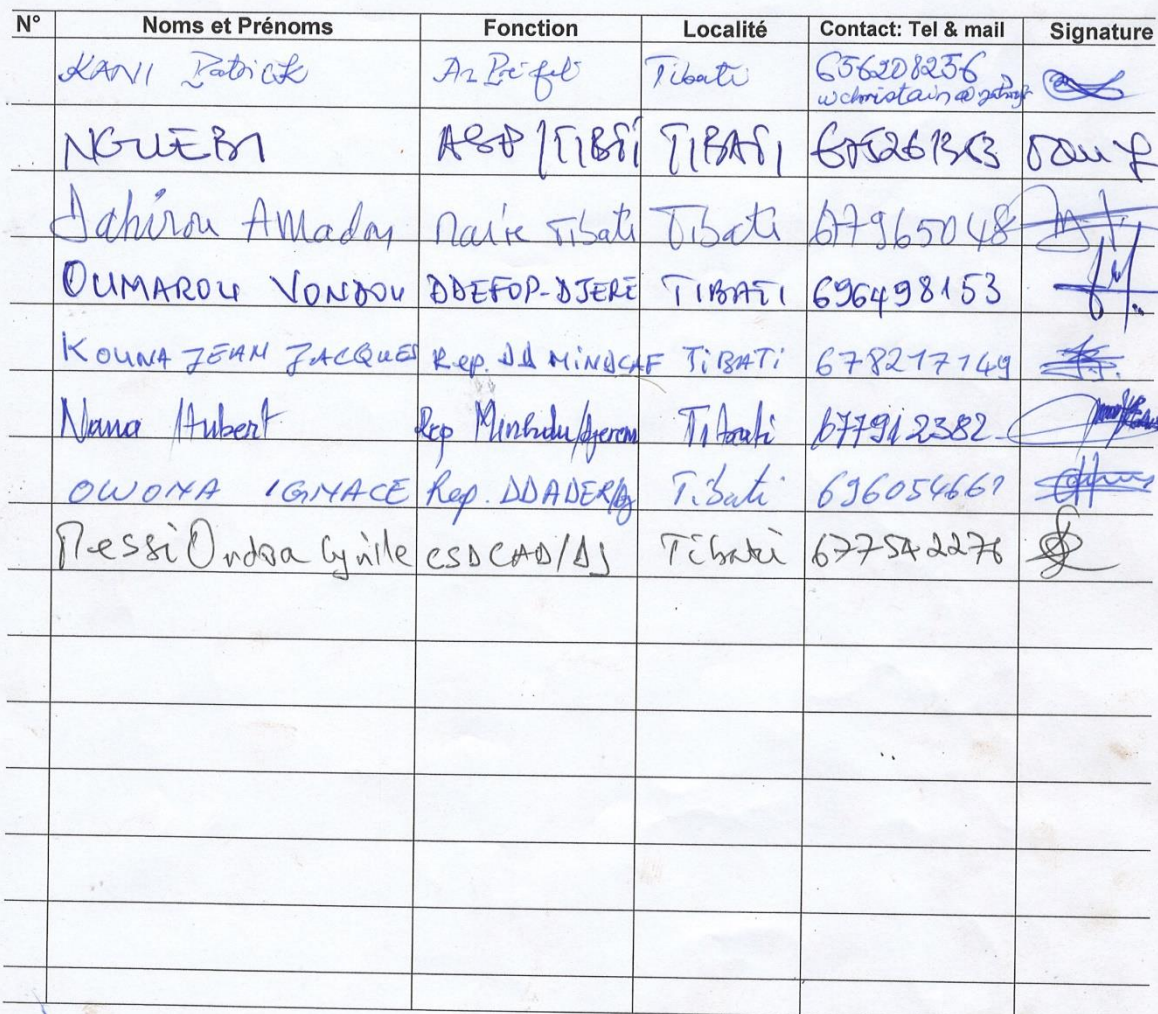 N° Noms et Prénoms Fonction Localité Contact: Tel & mail Signature
KANI Patrick Tibati 656208256
NGUEBI TIBATI
Dahirou Amadou Maire Tibati Tibati 677965048
OUMAROU VONDOU DDEFOP-DJERE TIBATI 696498153
KOUNA JEAN JACQUES Rep. DD MINDCAF TIBATI 678217149
Nana Hubert Rep Minhdu/Djerem Tibati 677912382
OWONA IGNACE Rep. DDADER/Dj Tibati 696054661
Messi Ondoa Cyrille CSDCAD/DJ Tibati 677542276